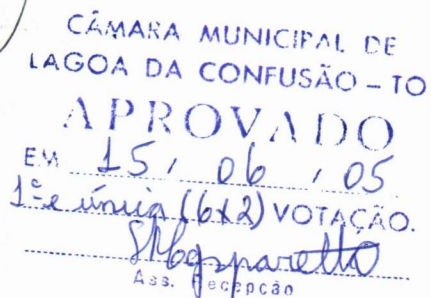 CÂMARA MUNICIPAL DE
LAGOA DA CONFUSÃO – TO
APROVADO
EM 15 / 06 / 05
1ª e única (6x2) VOTAÇÃO.
Ass. Recepcão